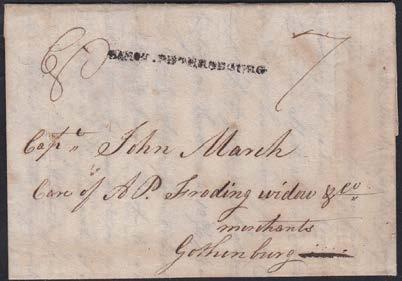 SANCT.PETERSBOURG 7
Captn John March
Care of A P. Frading widow & Co
merchants
Gothenburg